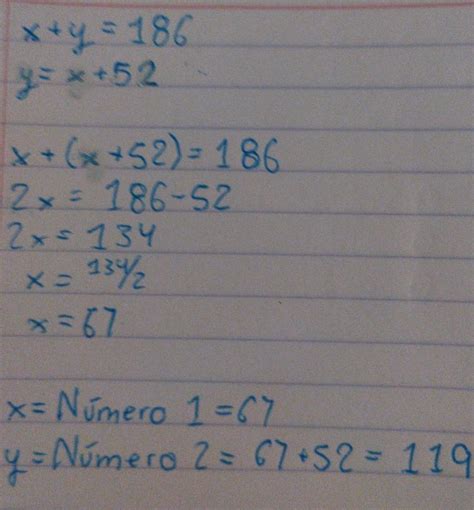 x+y=186
y=x+52
x+(x+52)=186
2x=186-52
2x=134
x=134/2
x=67
x=Número 1=67
y=Número 2=67+52=119